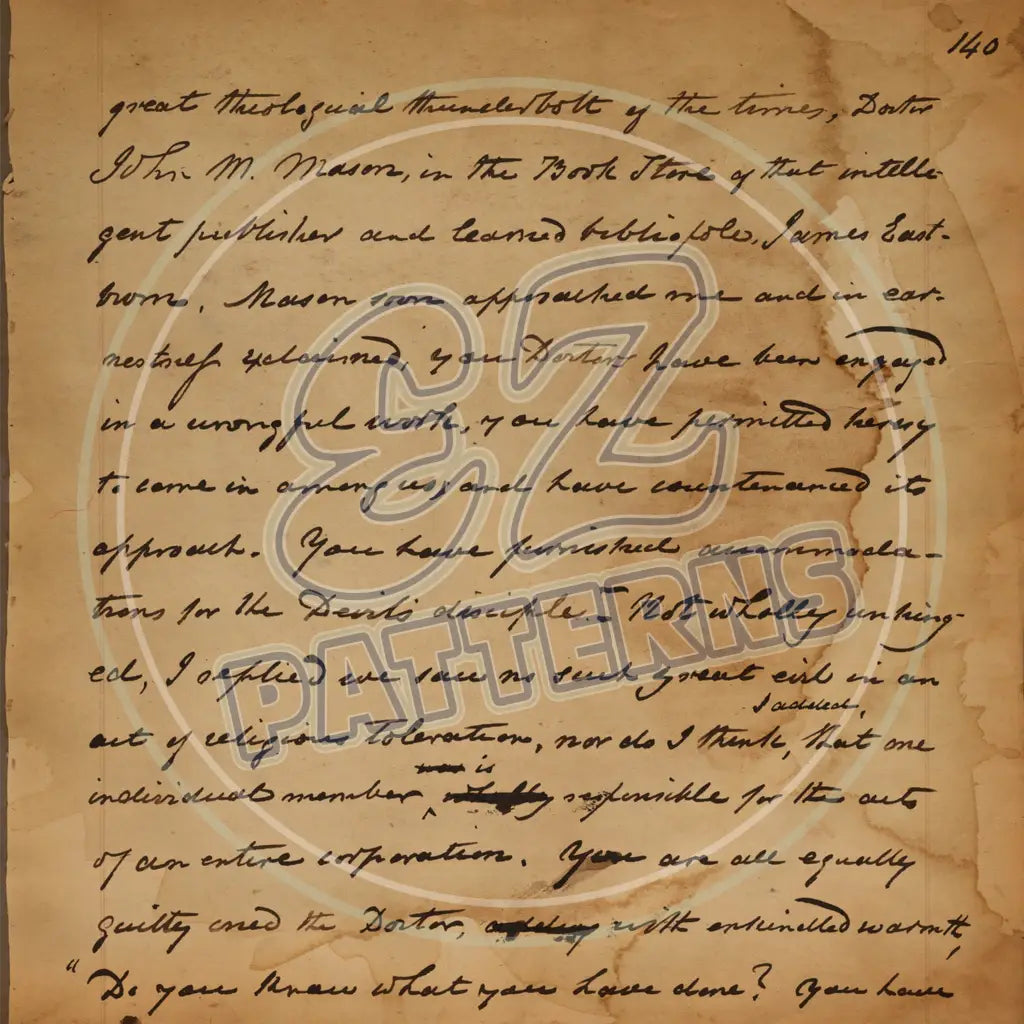 140
great theological thunderbolt of the times, Doctor
John M. Mason, in the Book Store of that intelli-
gent publisher and learned bibliopole, James East-
burn. Mason soon approached me and in ear-
nestness exclaimed, you Doctor have been engaged
in a wrongful work, you have permitted heresy
to come in among us, and have countenanced its
approach. You have furnished accommoda-
tions for the Devil's disciple. Not wholly unhing-
ed, I replied we saw no such great evil in an
I added,
act of religious toleration, nor do I think, that one
is
individual member responsible for the acts
of an entire corporation. You are all equally
guilty cried the Doctor, with enkindled warmth,
"Do you know what you have done? You have
EZ
PATTERNS